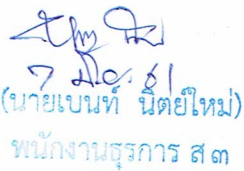 ๗ มี.ค. ๖๑
(นายเบนท์ นิตย์ใหม่)
พนักงานธุรการ ส ๓